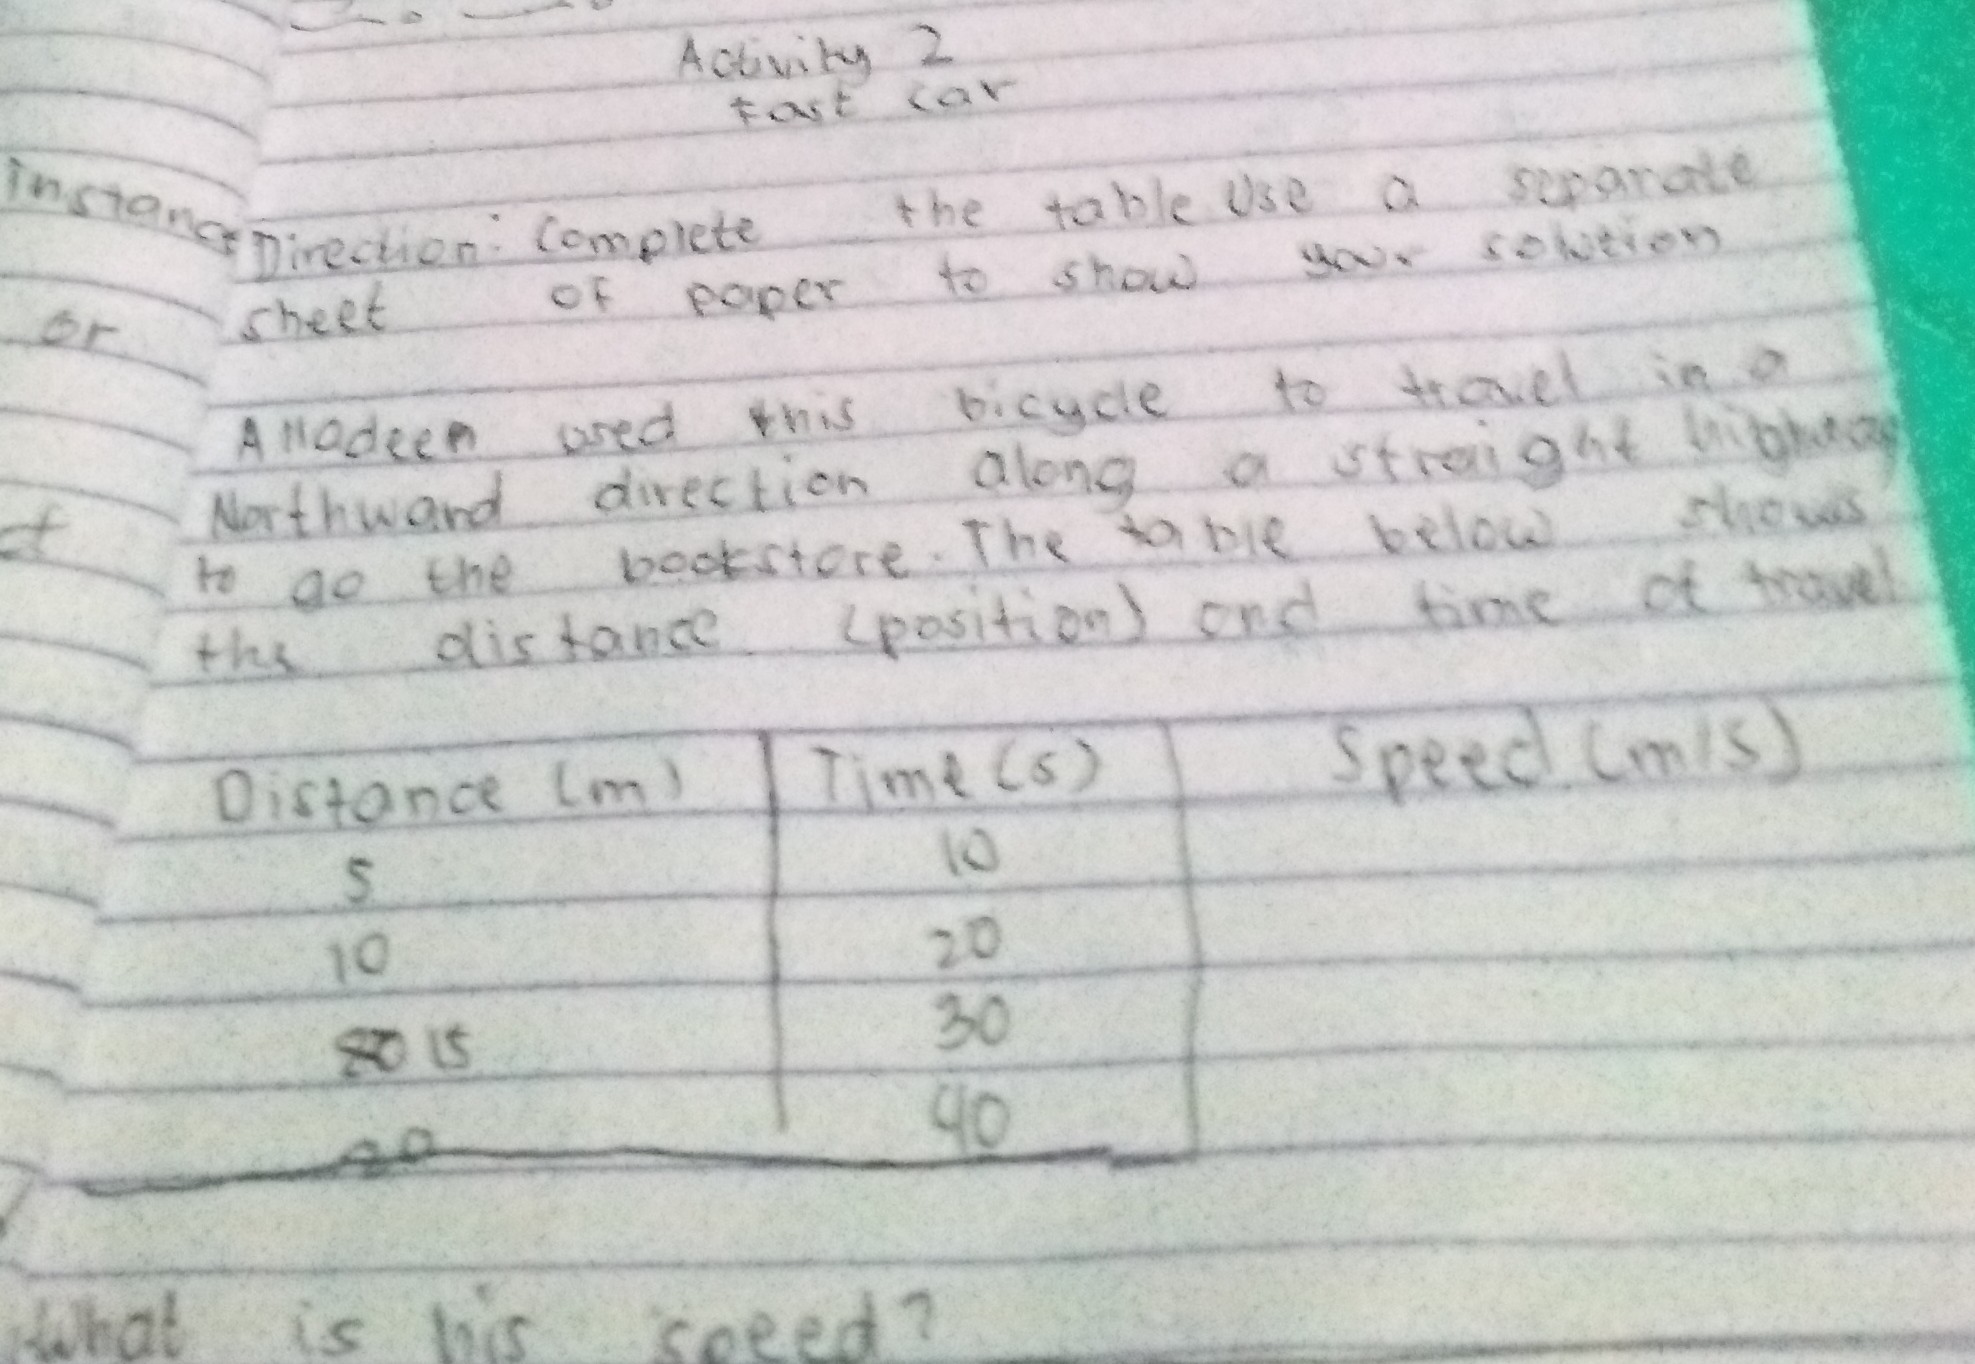 Activity 2
Fast car
instance
Direction: Complete the table Use a separate
sheet of paper to show your solution
or
Alladeen used this bicycle to travel in a
Northward direction along a straight highway
to go the bookstore. The table below shows
the distance (position) and time of travel
Distance (m) Time (s) Speed (m/s)
5 10
10 20
15 30
20 40
What is his speed?